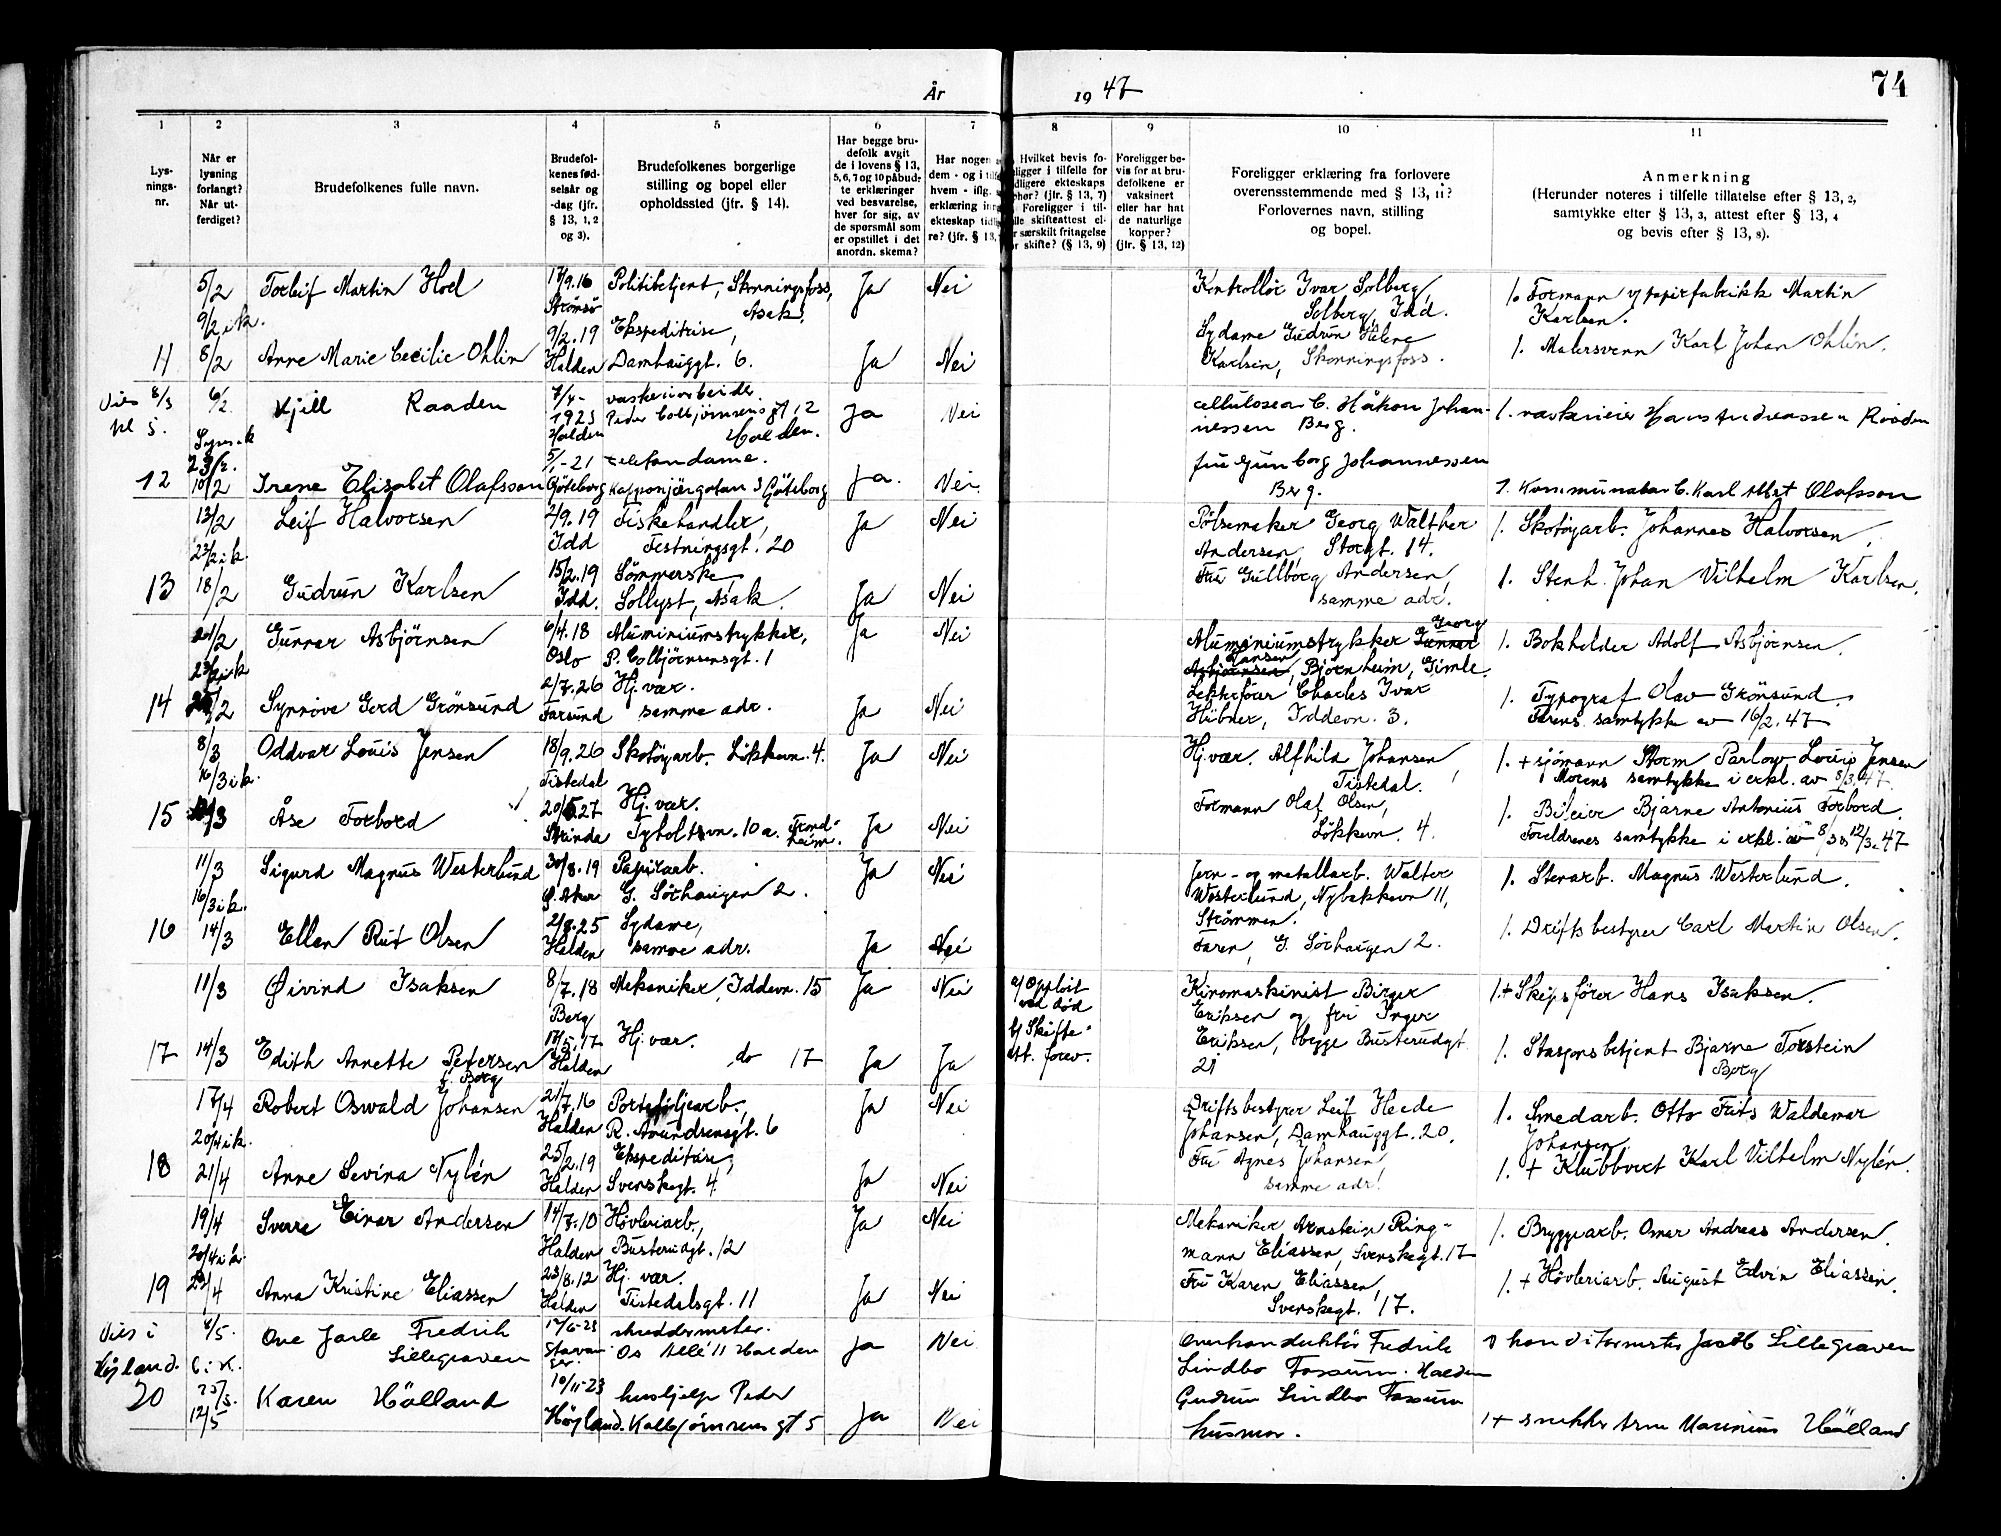 År 1947
74
1 2 3 4 5 6 7 8 9 10 11
Lysningsnr.
Når er lysning forlangt? Når utferdiget?
Brudefolkenes fulle navn.
Brudefolkenes fødselsår og -dag (jfr. § 13, 1, 2 og 3).
Brudefolkenes borgerlige stilling og bopel eller opholdssted (jfr. § 14).
Har begge brudefolk avgit de i lovens § 13, 5, 6, 7 og 10 påbudte erklæringer ved besvarelse, hver for sig, av de spørsmål som er opstillet i det anordn. skema?
Foreligger bevis for at brudefolkene er vaksinert eller har hat de naturlige kopper? (jfr. § 13, 12)
Foreligger erklæring fra forlovere overensstemmende med § 13, 11? Forlovernes navn, stilling og bopel.
Anmerkning
(Herunder noteres i tilfelle tillatelse efter § 13, 2, samtykke efter § 13, 3, attest efter § 13, 4 og bevis efter § 13, 8).
5/2 Torleif Martin Hoel 17/9.16 Politibetjent, Skonningsfoss, Ja Nei Kontrollør Ivar Solberg, Formann v/ papirfabrikk Martin
9/2 i k. Strømsø Asak. Solberg, Idd. Karlsen.
11 8/2 Anne Marie Cecilie Ohlin 9/2.19 Ekspeditrise, Sydame Gudrun Helene 1. Malersvenn Karl Johan Ohlin.
Halden Damhauggt. 6. Ja Nei Karlsen, Skonningsfoss.
Vies 8/3 kl 5. 6/2 Kjell Raaden 7/4- 1923 Halden vaskeriarbeider Peder Colbjørnsens gt 12 Halden. Ja Nei celluloseark. Håkon Johannessen Berg.
12 10/2 Irene Elisabet Olafsson 5/1-21 Göteborg telefondame. Göteborg Ja. Nei. fru Gunborg Johannessen Berg. Karl Albet Olafsson
13/2 Leif Halvorsen 2/9.19 Idd Fiskehandler, Festningsgt. 20 Ja Nei Pølsemaker Georg Walther Andersen, Storgt. 14. 1. Skotøyarb. Johannes Halvorsen.
23/2 i k.
13 18/2 Gudrun Karlsen 15/2.19 Idd. Sømmerske, Sollyst, Asak. Ja Nei Fru Gullborg Andersen, samme adr. 1. Stenh. Johan Vilhelm Karlsen.
21/2 Gunnar Asbjørnsen 6/4.18 Oslo Aluminiumstrykker, P. Colbjørnsensgt. 1 Ja Nei Aluminiumstrykker Georg Hansen, Bjørnheim, Gimle. 1. Bokholder Adolf Asbjørnsen.
14 Synnøve Gerd Grønsund 2/7.26 Farsund Hj. vær. samme adr. Ja Nei Charles Ivar Hübner, Iddevn. 3. 1. Typograf Olav Grønsund. Farens samtykke av 16/2.47
8/3 Oddvar Louis Jensen 18/9.26 Tistedal Skotøyarb. Løkkevn. 4. Ja Nei Hj.vær. Alfhild Johansen, Tistedal. 1. + sjømann Storm Parlow Louis Jensen Morens samtykke i erkl. av 8/3.47
16/3 i k.
15 Åse Forbord 20/5.27 Strinda Hj. vær. Tyholtvn. 10 a. Trondheim. Ja Nei Formann Olaf Olsen, Løkkevn. 4. 1. Bileier Bjarne Antonius Forbord. Foreldrenes samtykke i erkl. av 8/3 og 12/3.47
11/3 Sigurd Magnus Westerlund 30/8.19 Ø. Aker Papirarb. G. Sørhaugen 2. Ja Nei Jern- og metallarb. Walter Westerlund, Nybakkevn 11, Strømmen. 1. Stenarb. Magnus Westerlund.
16/3 i k.
16 14/3 Ellen Rut Olsen 2/8.25 Halden Sydame, samme adr. Ja Nei Faren, G. Sørhaugen 2. 1. Driftsbestyrer Carl Martin Olsen.
11/3 Øivind Isaksen 8/7.18 Berg Mekaniker, Iddevn. 15 Ja Nei a/ Oppløst ved død Kinomaskinist Birger Eriksen og fru Inger 1.+ Skipsfører Hans Isaksen.
17 14/3 Edith Annette Petersen f. Berg 17/5.17 Halden Hj. vær. do 17 Ja Ja b/ Skifteatt. forev. Eriksen, begge Busterudgt. 21 1. Stasjonsbetjent Bjarne Torstein Berg
17/4 Robert Oswald Johansen 21/7.16 Halden Porteføljearb., R. Amundsensgt. 6 Ja Nei Driftsbestyrer Leif Heede Johansen, Damhauggt. 20. 1. Smedarb. Otto Frits Waldemar Johansen
20/4 i k.
18 21/4 Anne Sevina Nylén 25/2.19 Halden Ekspeditrise, Svenskegt. 4. Ja Nei Fru Agnes Johansen, samme adr. 1. + Klubbvert Karl Vilhelm Nylén.
19/4 Sverre Einar Andersen 14/7.10 Halden Høvleriarb., Busterudgt. 12 Ja Nei Mekaniker Arnstein Ringmann Eliassen, Svenskegt. 17 1. Bryggearb. Omar Andreas Andersen.
20/4 i k.
19 Anna Kristine Eliassen 23/8.12 Halden Hj. vær. Tistedalsgt. 11 Ja Nei Fru Karen Eliassen, Svenskegt. 17. 1. + Høvleriarb. August Edvin Eliassen.
Vies i Ove Jarle Fredrik Lillegraven Stavanger. skreddermester. Os Allé 11 Halden Ja Nei Overkonduktør Fredrik Lindbo Fossum. Halden konditormester Jacob Lillegraven
20 12/5 Karen Hölland 10/11-23 Høyland. hushjelp Peder Kolbjørnsens gt 5 Ja Nei Gudrun Lindbo Fossum husmor. 1 + snekker Arne Marinius Hölland